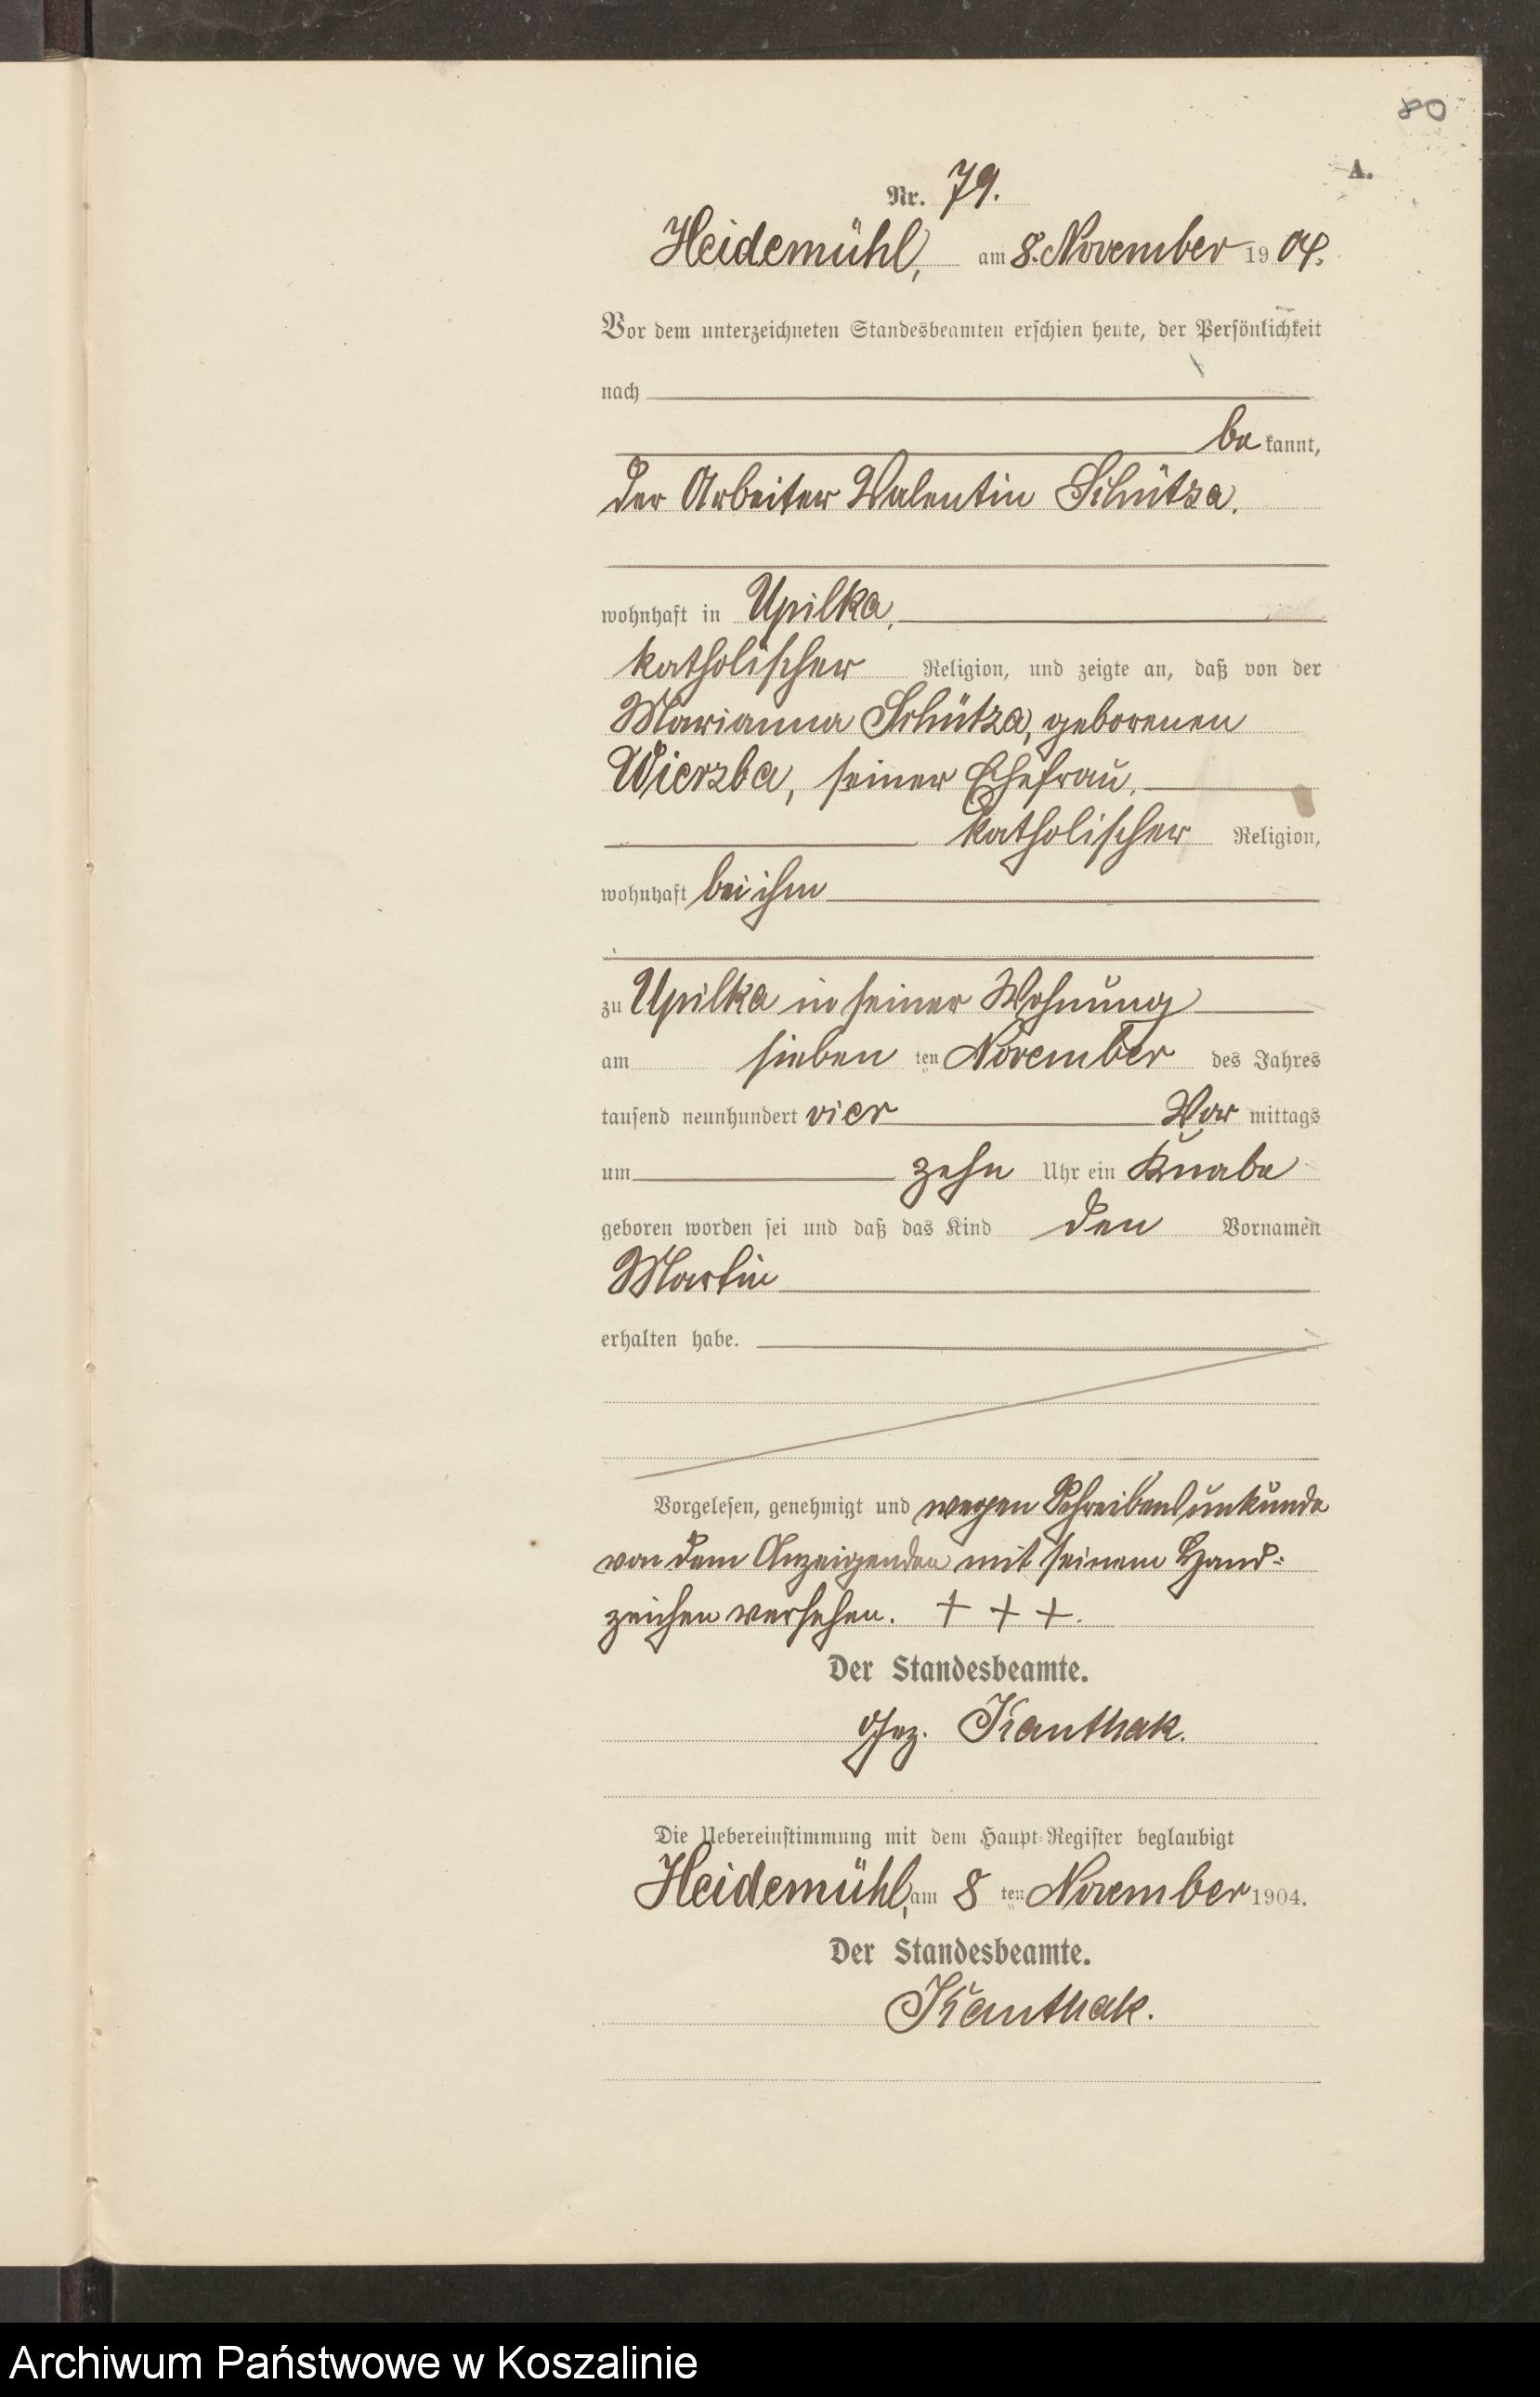 80
A.
Nr. 79.
Heidemühl, am 8. November 1904.
Vor dem unterzeichneten Standesbeamten erschien heute, der Persönlichkeit
nach
be kannt,
der Arbeiter Valentin Schütza,
wohnhaft in Upilka,
katholischer Religion, und zeigte an, daß von der
Marianna Schütza, geborenen
Wierzba, seiner Ehefrau,
katholischer Religion,
wohnhaft bei ihm
zu Upilka in seiner Wohnung
am sieben ten November des Jahres
tausend neunhundert vier Vor mittags
um zehn Uhr ein Knabe
geboren worden sei und daß das Kind den Vornamen
Martin
erhalten habe.
Vorgelesen, genehmigt und wegen Schreibensunkunde
von dem Anzeigenden mit seinem Hand-
zeichen versehen. + + +.
Der Standesbeamte.
Gez. Kanthak.
Die Uebereinstimmung mit dem Haupt-Register beglaubigt
Heidemühl, am 8 ten November 1904.
Der Standesbeamte.
Kanthak.
Archiwum Państwowe w Koszalinie